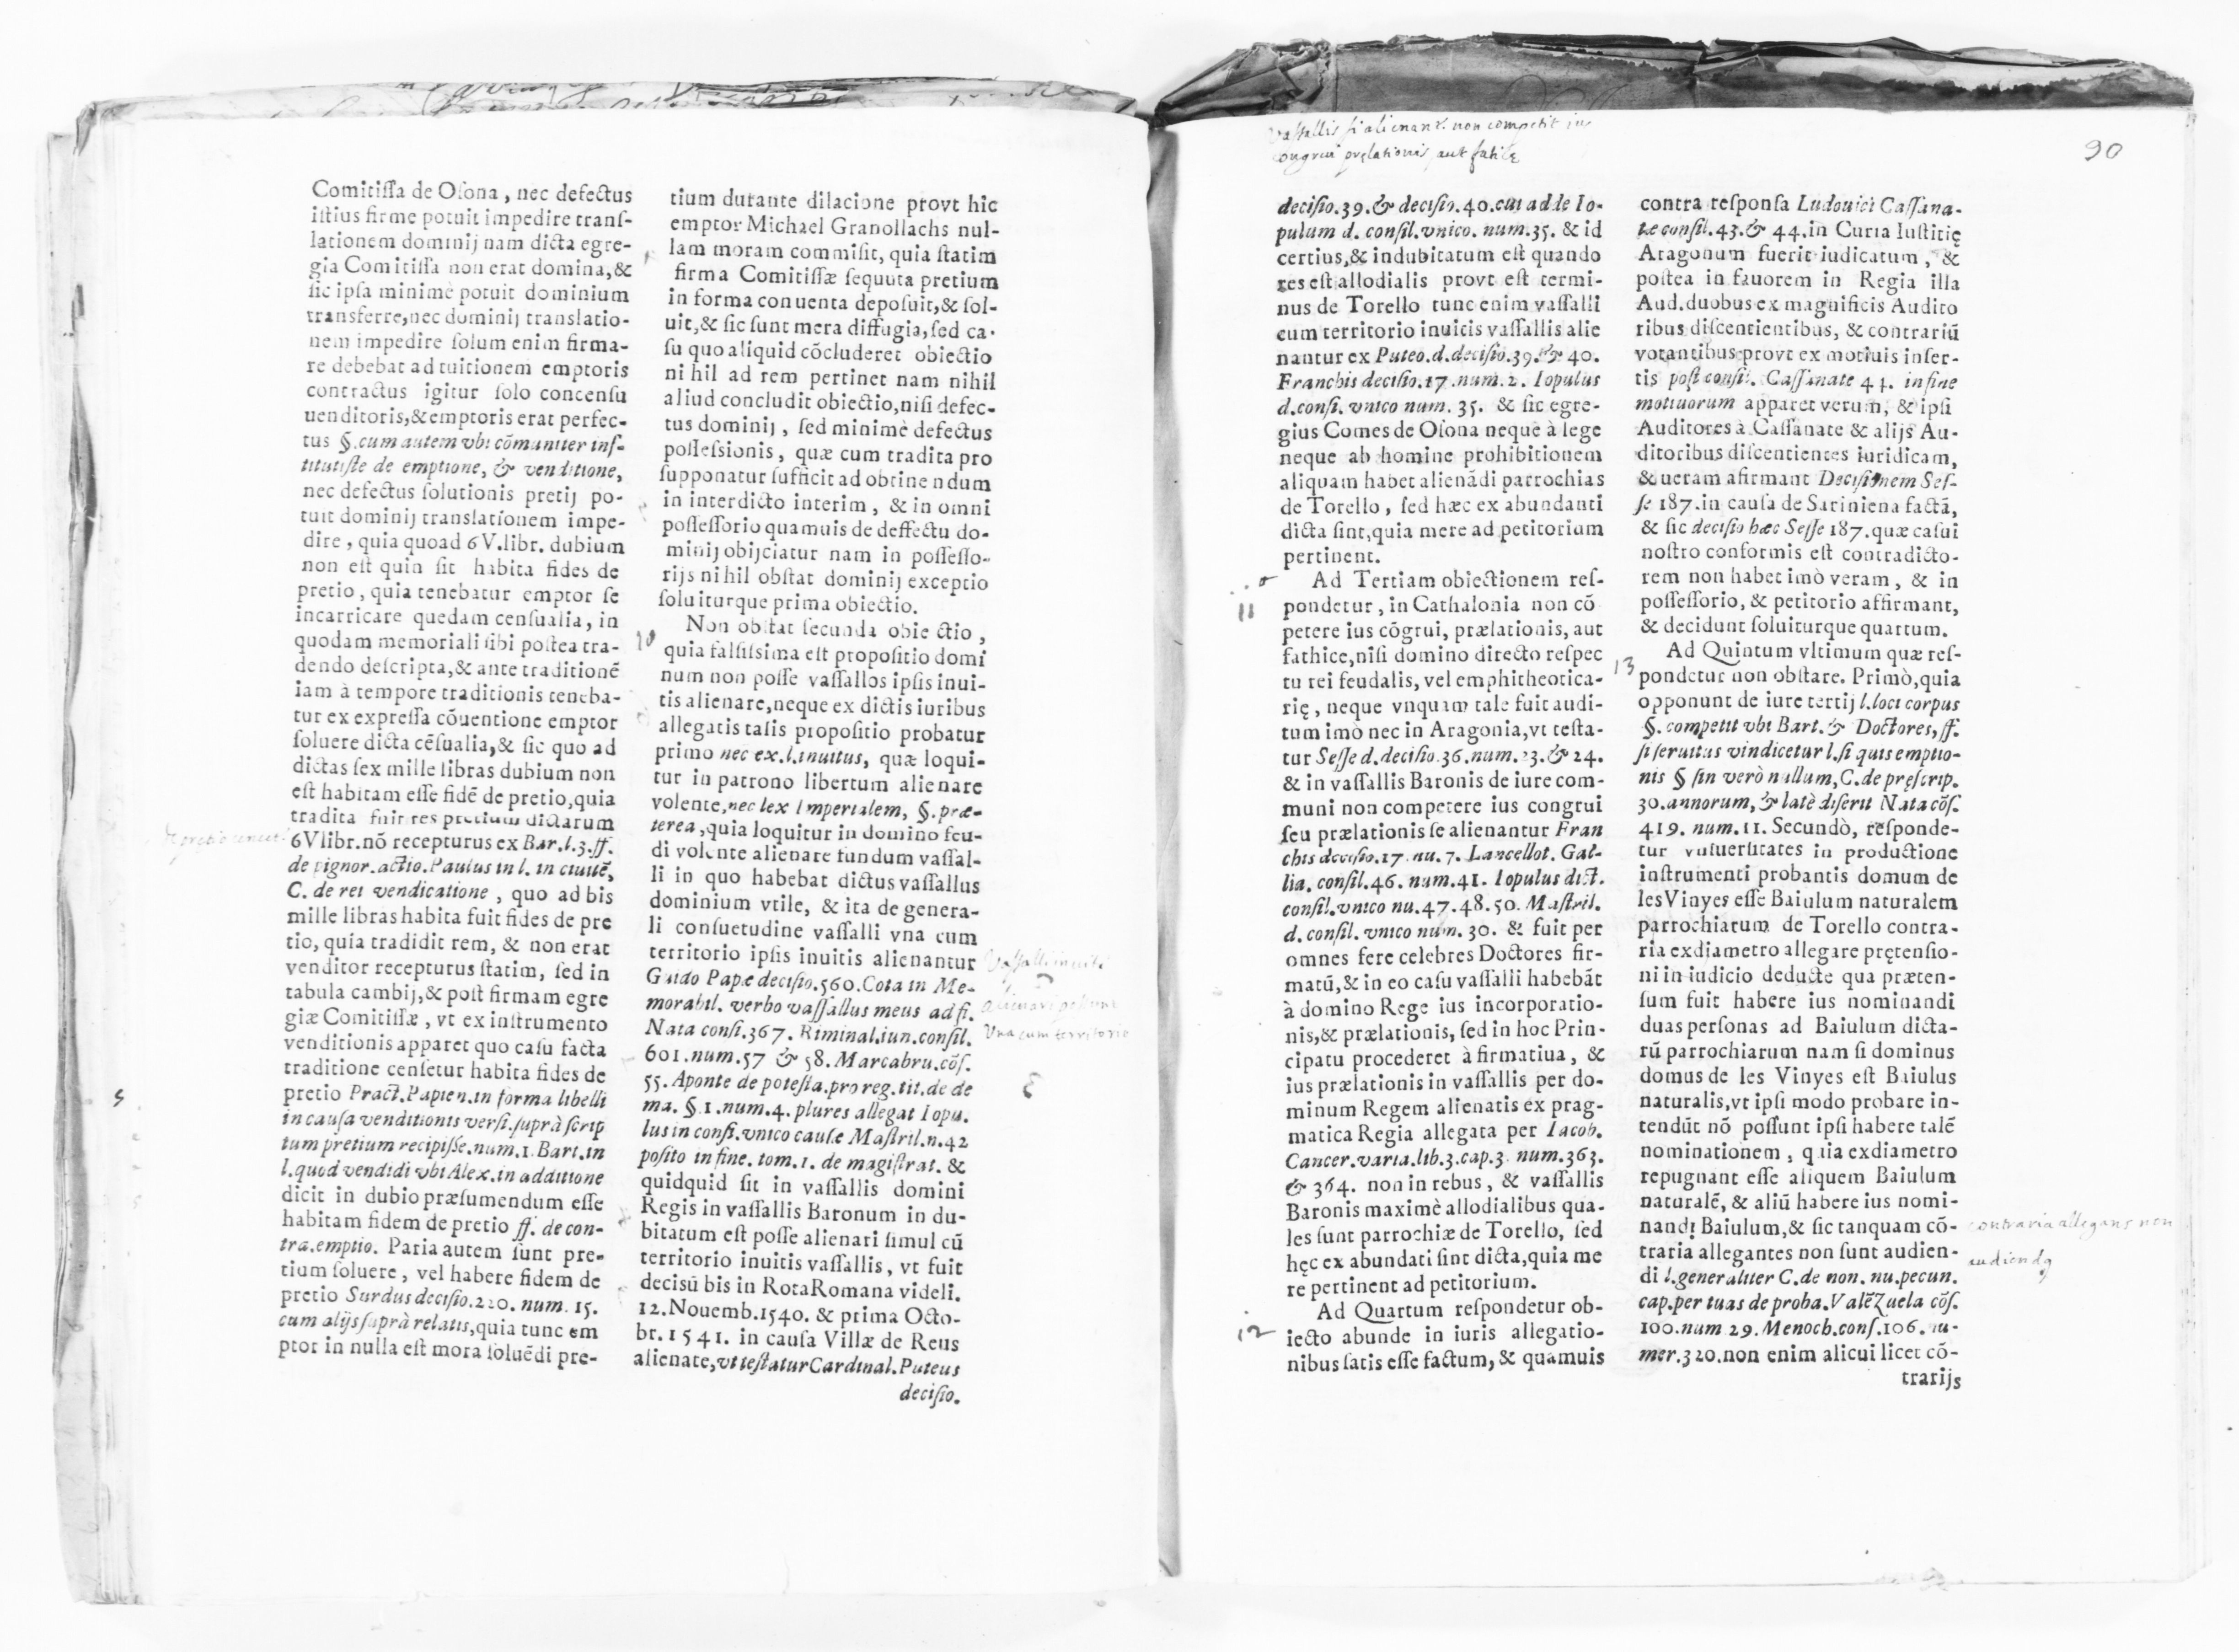 Comitissa de Osona, nec defectus
istius firme potuit impedire trans-
lationem dominij nam dicta egre-
gia Comitissa non erat domina, &
sic ipsa minimè potuit dominium
transferre, nec dominij translatio-
nem impedire solum enim firma-
re debebat ad tuitionem emptoris
contractus igitur solo concensu
uenditoris, & emptoris erat perfec-
tus §. cum autem vbi cõmuniter ins-
titutiste de emptione, & venditione,
nec defectus solutionis pretij po-
tuit dominij translationem impe-
dire, quia quoad 6V. libr. dubium
non est quin sit habita fides de
pretio, quia tenebatur emptor se
incarricare quedam censualia, in
quodam memoriali sibi postea tra-
dendo descripta, & ante traditionẽ
iam à tempore traditionis teneba-
tur ex expressa cõuentione emptor
soluere dicta cẽsualia, & sic quo ad
dictas sex mille libras dubium non
est habitam esse fidẽ de pretio, quia
tradita fuit res pretium dictarum
6V libr. nõ recepturus ex Bar. l. 3. ff.
de pignor. actio. Paulus in l. in ciuilẽ,
C. de rei vendicatione, quo ad bis
mille libras habita fuit fides de pre
tio, quia tradidit rem, & non erat
venditor recepturus statim, sed in
tabula cambij, & post firmam egre
giæ Comitissæ, vt ex instrumento
venditionis apparet quo casu facta
traditione censetur habita fides de
pretio Pract. Papien. in forma libelli
in causa venditionis versi. suprà scrip
tum pretium recipisse. num. 1. Bart. in
l. quod vendidi vbi Alex. in additione
dicit in dubio præsumendum esse
habitam fidem de pretio ff. de con-
tra. emptio. Paria autem sunt pre-
tium soluere, vel habere fidem de
pretio Surdus decisio. 220. num. 15.
cum alijs suprà relatis, quia tunc em
ptor in nulla est mora soluẽdi pre-
5
tium durante dilacione provt hic
emptor Michael Granollachs nul-
lam moram commisit, quia statim
firma Comitissæ sequuta pretium
in forma conuenta deposuit, & sol-
uit, & sic sunt mera diffugia, sed ca-
su quo aliquid cõcluderet obiectio
nihil ad rem pertinet nam nihil
aliud concludit obiectio, nisi defec-
tus dominij, sed minimè defectus
possessionis, quæ cum tradita pro
supponatur sufficit ad obtinendum
in interdicto interim, & in omni
possessorio quamuis de deffectu do-
minij obijciatur nam in possesso-
rijs nihil obstat dominij exceptio
soluiturque prima obiectio.
10
Non obstat secunda obie ctio,
quia falsissima est propositio domi
num non posse vassallos ipsis inui-
tis alienare, neque ex dictis iuribus
allegatis talis propositio probatur
primo nec ex. l. inuitus, quæ loqui-
tur in patrono libertum alienare
volente, nec lex Imperialem, §. præ-
terea, quia loquitur in domino feu-
di volente alienare fundum vassal-
li in quo habebat dictus vassallus
dominium vtile, & ita de genera-
li consuetudine vassalli vna cum
territorio ipsis inuitis alienantur
Guido Papæ decisio. 560. Cota in Me-
morabil. verbo vassallus meus ad fi.
Nata consi. 367. Riminal. iun. consil.
601. num. 57 & 58. Marcabru. cõs.
55. Aponte de potesta. pro reg. tit. de de
ma. §. 1. num. 4. plures allegat Iopu-
lus in consi. vnico causæ Mastril. n. 42
posito in fine. tom. 1. de magistrat. &
quidquid sit in vassallis domini
Regis in vassallis Baronum in du-
bitatum est posse alienari simul cũ
territorio inuitis vassallis, vt fuit
decisũ bis in Rota Romana videli.
12. Nouemb. 1540. & prima Octo-
br. 1541. in causa Villæ de Reus
alienate, vt testatur Cardinal. Puteus
decisio.
una cum territorio
vassallis si alienant. non competit ius
congrui prelationis aut fatice
90
decisio. 39. & decisio. 40. cui adde Io-
pulum d. consil. vnico. num. 35. & id
certius, & indubitatum est quando
res est allodialis provt est termi-
nus de Torello tunc enim vassalli
cum territorio inuitis vassallis alie
nantur ex Puteo. d. decisio. 39. & 40.
Franchis decisio. 17. num. 2. Iopulus
d. consi. vnico num. 35. & sic egre-
gius Comes de Osona neque à lege
neque ab homine prohibitionem
aliquam habet alienãdi parrochias
de Torello, sed hæc ex abundanti
dicta sint, quia mere ad petitorium
pertinent.
11
Ad Tertiam obiectionem res-
pondetur, in Cathalonia non cõ
petere ius cõgrui, prælationis, aut
fathice, nisi domino directo respec
tu rei feudalis, vel emphitheotica-
rię, neque vnquam tale fuit audi-
tum imò nec in Aragonia, vt testa-
tur Sesse d. decisio. 36. num. 23. & 24.
& in vassallis Baronis de iure com-
muni non competere ius congrui
seu prælationis se alienantur Fran
chis decisio. 17. nu. 7. Lancellot. Gal-
lia. consil. 46. num. 41. Iopulus dict.
consil. vnico nu. 47. 48. 50. Mastril.
d. consil. vnico num. 30. & fuit per
omnes fere celebres Doctores fir-
matũ, & in eo casu vassalli habebãt
à domino Rege ius incorporatio-
nis, & prælationis, sed in hoc Prin-
cipatu procederet àfirmatiua, &
ius prælationis in vassallis per do-
minum Regem alienatis ex prag-
matica Regia allegata per Iacob.
Cancer. varia. lib. 3. cap. 3. num. 363.
& 364. non in rebus, & vassallis
Baronis maximè allodialibus qua-
les sunt parrochiæ de Torello, sed
hęc ex abundati sint dicta, quia me
re pertinent ad petitorium.
12
Ad Quartum respondetur ob-
iecto abunde in iuris allegatio-
nibus satis esse factum, & quamuis
contra responsa Ludouici Cassana-
te consil. 43. & 44. in Curia Iustitię
Aragonum fuerit iudicatum, &
postea in fauorem in Regia illa
Aud. duobus ex magnificis Audito
ribus discentientibus, & contrariũ
votantibus provt ex motiuis inser-
tis post consil. Cassanate 44. in fine
motiuorum apparet verum, & ipsi
Auditores à Cassanate & alijs Au-
ditoribus discentientes iuridicam,
& ueram afirmant Decisionem Ses-
se 187. in causa de Sariniena factã,
& sic decisio hæc Sesse 187. quæ casui
nostro conformis est contradicto-
rem non habet imò veram, & in
possessorio, & petitorio affirmant,
& decidunt soluiturque quartum.
13
Ad Quintum vltimum quæ res-
pondetur non obstare. Primò, quia
opponunt de iure tertij l. loci corpus
§. competit vbi Bart. & Doctores, ff.
si seruitus vindicetur l. si quis emptio-
nis § sin verò nullum, C. de pręscrip.
30. annorum, & latè diserit Nata cõs.
419. num. 11. Secundò, responde-
tur vniuersitates in productione
instrumenti probantis domum de
les Vinyes esse Baiulum naturalem
parrochiarum de Torello contra-
ria exdiametro allegare prętensio-
ni in iudicio deducte qua præten-
sum fuit habere ius nominandi
duas personas ad Baiulum dicta-
rũ parrochiarum nam si dominus
domus de les Vinyes est Baiulus
naturalis, vt ipsi modo probare in-
tendũt nõ possunt ipsi habere talẽ
nominationem, quia exdiametro
repugnant esse aliquem Baiulum
naturalẽ, & aliũ habere ius nomi-
nandi Baiulum, & sic tanquam cõ-
traria allegantes non sunt audien-
di l. generaliter C. de non. nu. pecun.
cap. per tuas de proba. Valẽzuela cõs.
100. num 29. Menoch. cons. 106. nu-
mer. 320. non enim alicui licet cõ-
trarijs
contraria allegans non